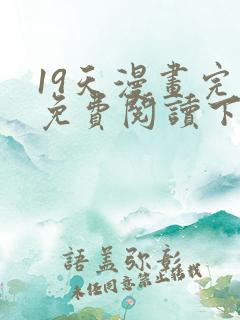 19天漫畫完
免費閱讀下
語蓋弥彰
未任同意禁止轉載